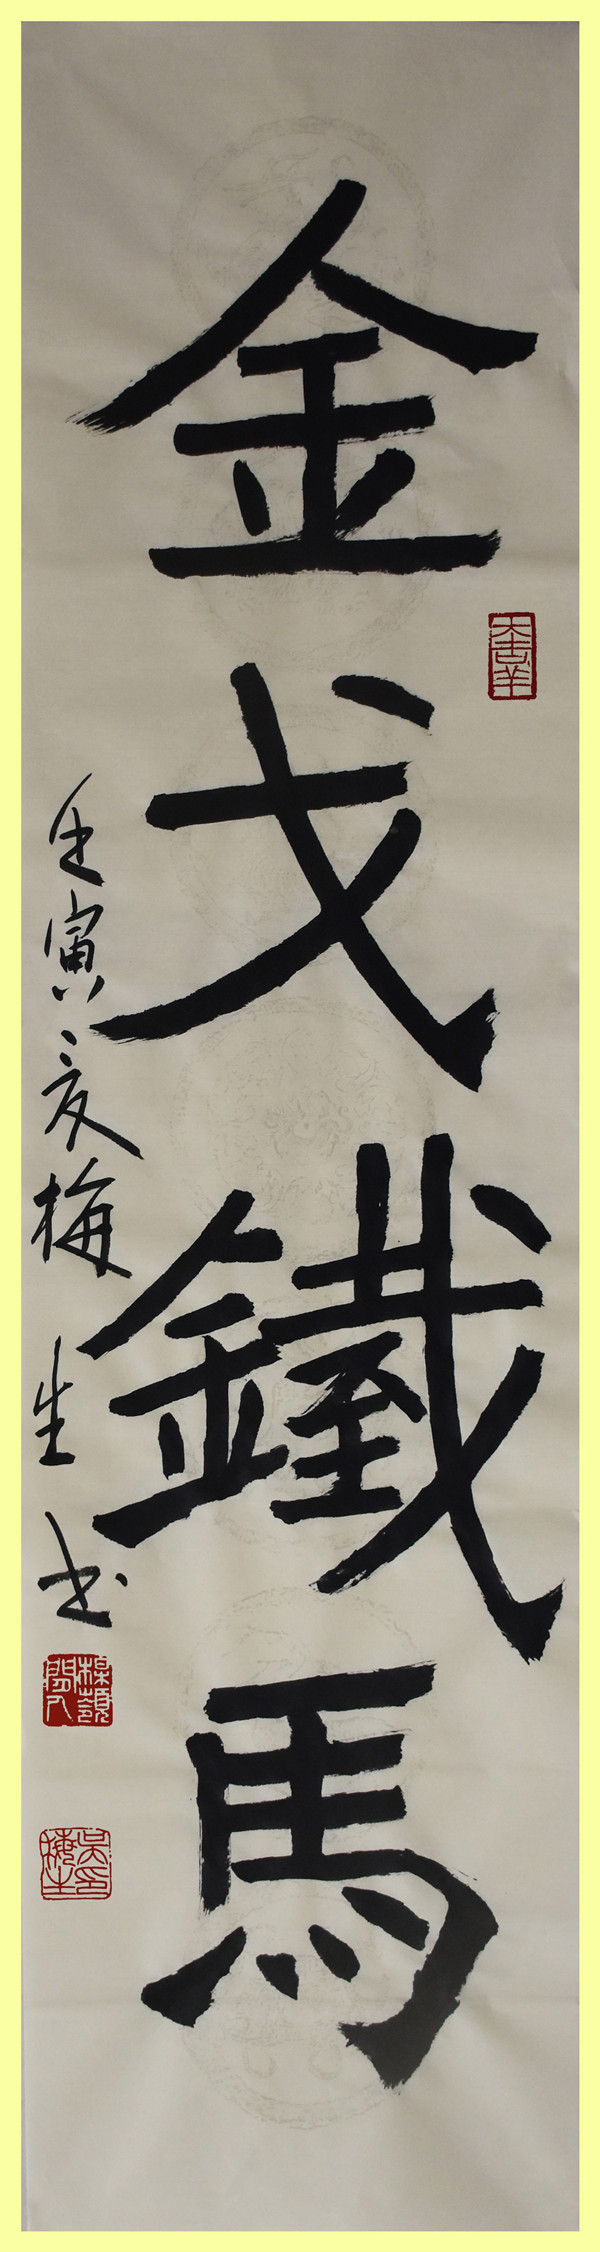 金戈鐵馬
壬寅夏梅生书